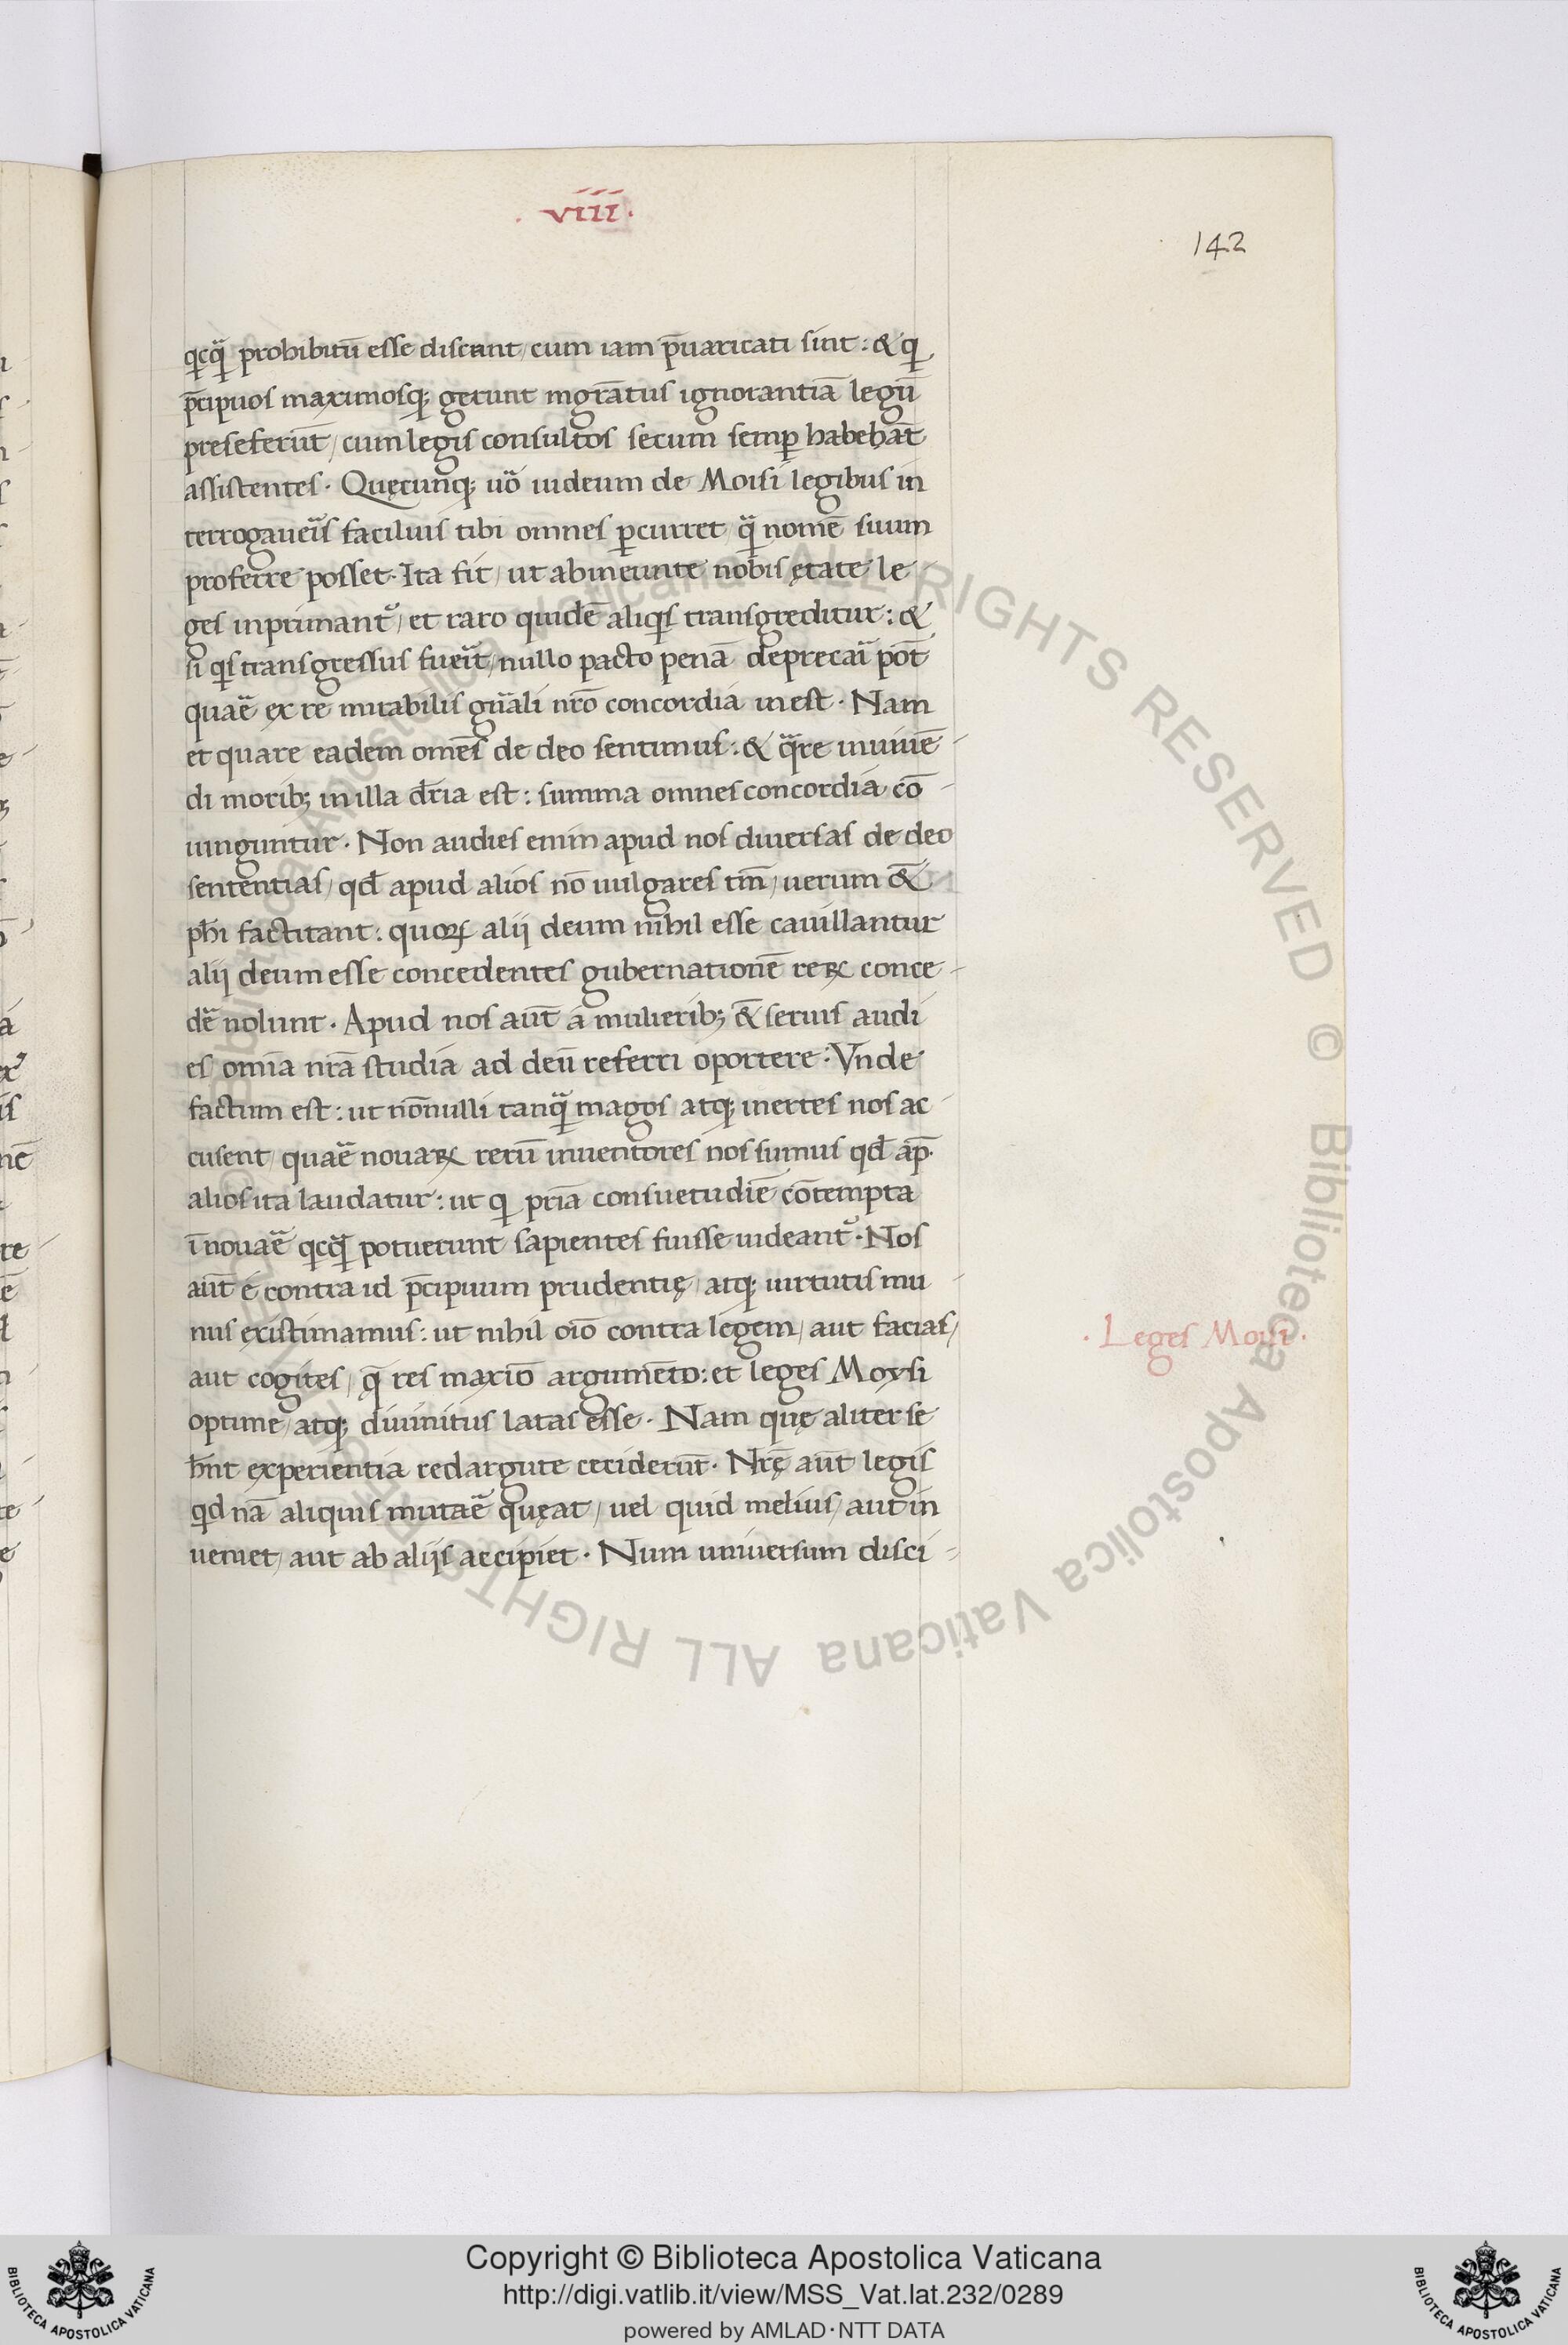 . viii .
142
qcq̃ prohibitũ esse discant / cum iam p̄uaricati sint : & q
p̄cipuos maximosq; gerunt mgr̄atus ignorantiā legū
preseferūt / cum legis consultos secum semp habebāt
assistentes . Quęcunq; uō iudeum de Moisi legibus in
terrogaueīs facilius tibi omnes ꝑcurret / q̄ nomē suum
proferre posset . Ita fit / ut abineunte nobis ętate le
ges inprimant᷑ / et raro quidē aliqs transgreditur : &
si qs transgressus fueīt / nullo pacto penā deprecaī pōt
quaē ex re mirabilis gn̄ali nrō concordia inest . Nam
et quare eadem omēs de deo sentimus : & q̄re inuiuē
di morib; in illa dr̄ia est : summa omnes concordia cō
iunguntur . Non audies enim apud nos diuersas de deo
sententias / qd̄ apud alios nō uulgares tm̄ / uerum &
phī factitant : quoꝝ alij deum nihil esse cauillantur
alij deum esse concedentes gubernationē reꝝ conce
dē nolunt . Apud nos aūt a mulierib; & seruis audi
es omīa nrā studia ad deū referri oportere : Vnde
factum est : ut nōnulli tanq̄ magos atq; inertes nos ac
cusent / quaē nouaꝝ rerū inuentores nos sumus qd̄ ap̄
alios ita laudatur : ut q prīa consuetudīe cōtempta
īnouaē qcq̄ potuerunt sapientes fuisse uideant᷑ . Nos
aūt e contra id p̄cipuum prudentię / atq; uirtutis mu
nus existimamus : ut nihil oīo contra legem / aut facias /
aut cogites / q̄ res maxīo argumēto : et leges Moysi
optime / atq; diuinitus latas esse . Nam quę aliter se
hn̄t experientia redargute ceciderūt . Nrę̄ aūt legis
qd nā aliquis mutaē quęat / uel quid melius / aut in
ueniet / aut ab alijs accipiet . Num uniuersum disci
. Leges Moisi .
Copyright © Biblioteca Apostolica Vaticana
http://digi.vatlib.it/view/MSS_Vat.lat.232/0289
powered by AMLAD · NTT DATA
BIBLIOTECA APOSTOLICA VATICANA
BIBLIOTECA APOSTOLICA VATICANA